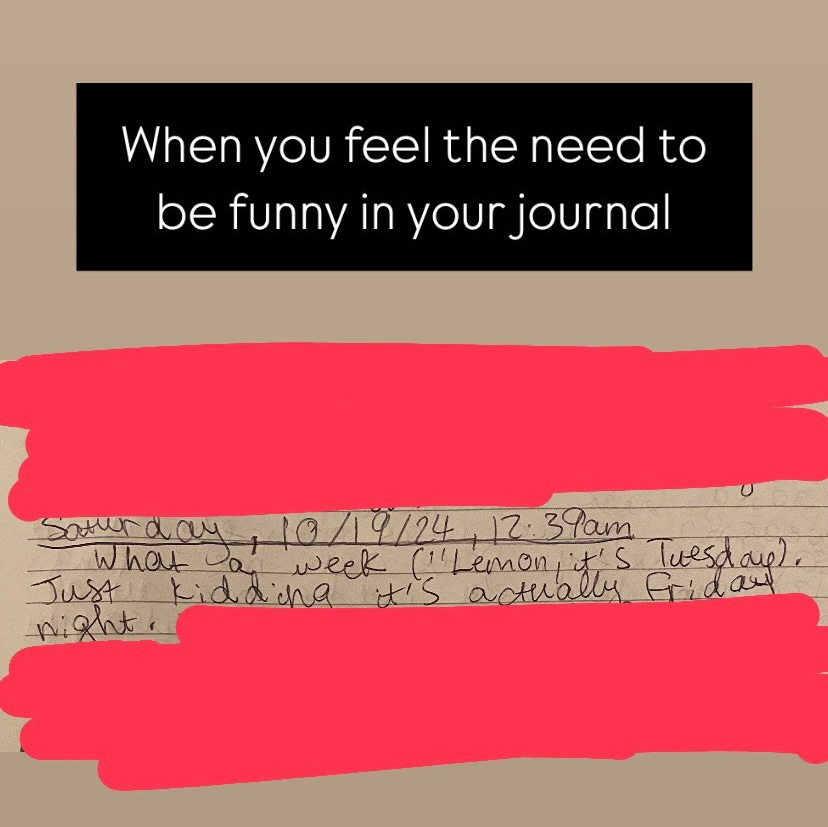 When you feel the need to
be funny in your journal
Saturday, 10/19/24, 12:39am
What a week ("Lemon, it's Tuesday).
Just kidding it's actually Friday
night.